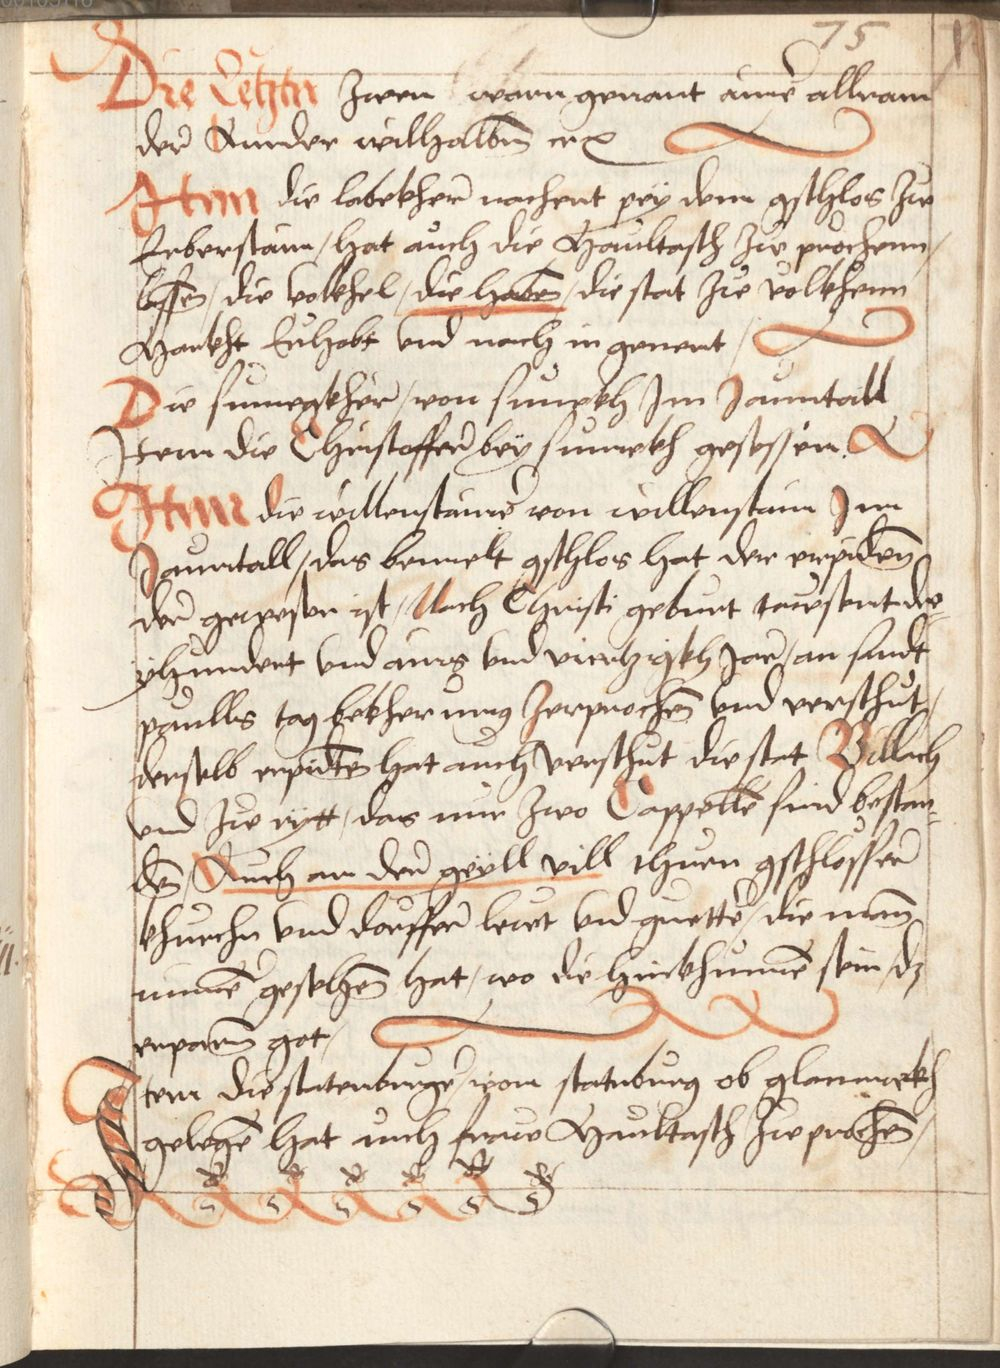 75
Die Letztn Zwen warn genant ainer allram
der Annder wilhalbm etc
Item die labekher nachent pey dem gschlos Zw
Erberstain / hat auch die Maultasch Zw prochenn /
die volkhel / die haben / die stat Zw Volkhenn
Markht Erhebt und nach in genent /
Die sunegkher / von sunekh Im Jaunntall
Item die Christoffer bey sunnekh gesessen.
Item die willenstainer von willenstain Im
Jaunntall / das bemelt gschlos hat der erpidem
der gewesen ist / Nach Christi geburt tausent dre-
yhundert und ains und viertzigkh Jar / an sandt
paulls tag bekherung Zerprochen und verschut /
derselb erpidem hat auch verschut die stat Villach
und Zw rytt / das nur Zwo Cappellen sind bestan-
den / Auch an der geyll vill thurn gschlosser
khirchn und dorffer leut und guetter / die man
nimer gesehen hat / wo die hinkhumen sein / dz
erparm got /
Item die statenburger / von statnburg ob glannekh
gelegen hat auch fraw Maultasch Zw prochen /